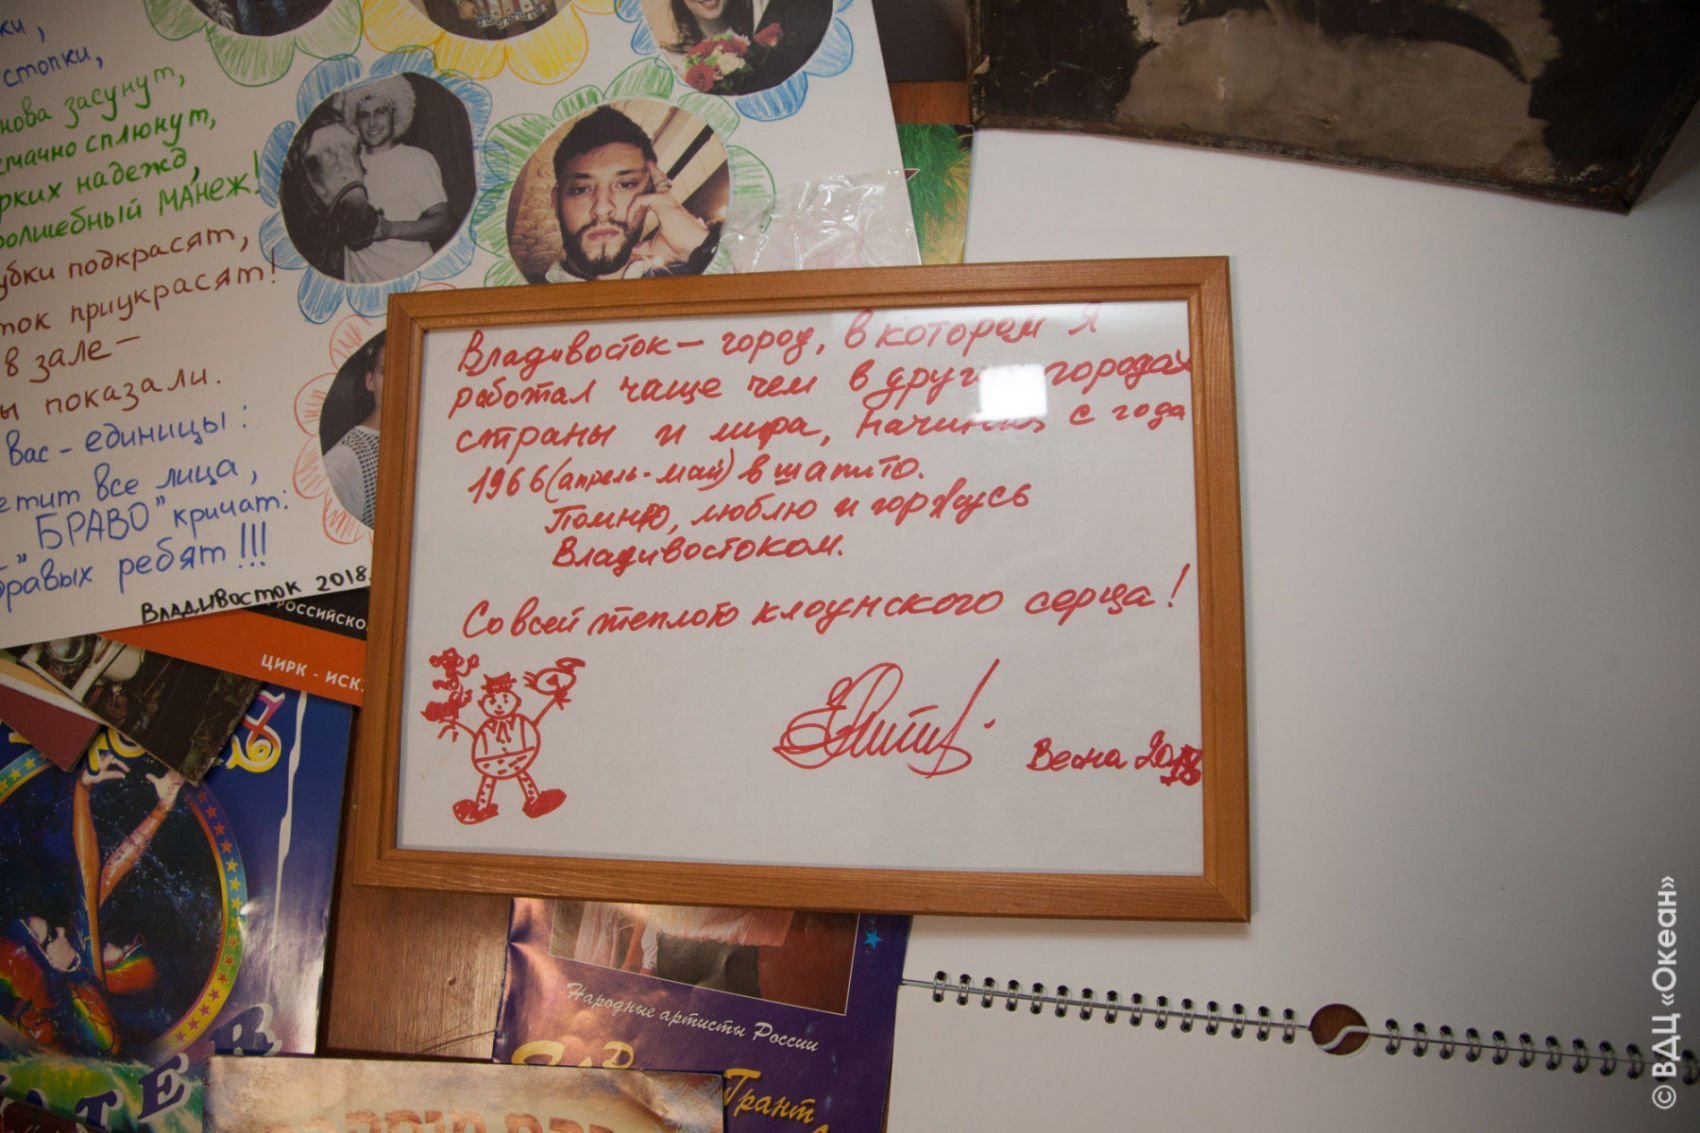 ки,
стопки,
нова засунут,
смачно сплюнут,
рких надежд,
волшебный МАНЕЖ!
убки подкрасят,
ток приукрасят!
в зале –
ы показали.
вас - единицы:
етит все лица,
„БРАВО" кричат:
бравых ребят!!!
Владивосток 2018.
РОССИЙСКО
ЦИРК - ИСК
Владивосток – город, в котором я
работал чаще чем в других городах
страны и мира, начиная с года
1966 (апрель - май) в шапито.
Помню, люблю и горжусь
Владивостоком.
Со всей теплотою клоунского сердца!
Весна 2018
Народные артисты России
Грант
АТЕР
© ВДЦ «Океан»